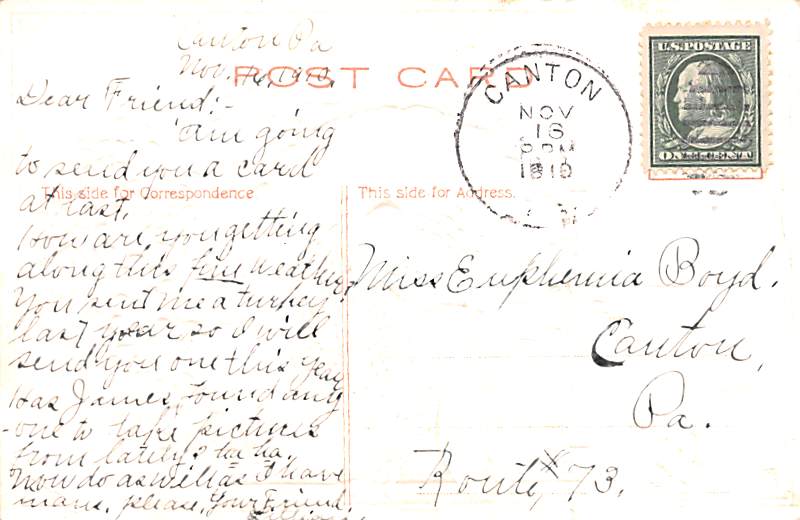 Canton Pa
Nov. 16, 1910.
POST CARD
Dear Friend:-
am going
to send you a card
at last.
How are you getting
along this fine weather.
You sent me a turkey
last year so I will
send you one this year
Has James found any
one to take pictures
from lately? ha ha.
Now do as well as I have
many, please, Your Friend.
This side for Correspondence
This side for Address.
CANTON
NOV
16
PM
1910
U.S. POSTAGE
ONE CENT
Miss Euphemia Boyd.
Canton,
Pa.
Route, 73.